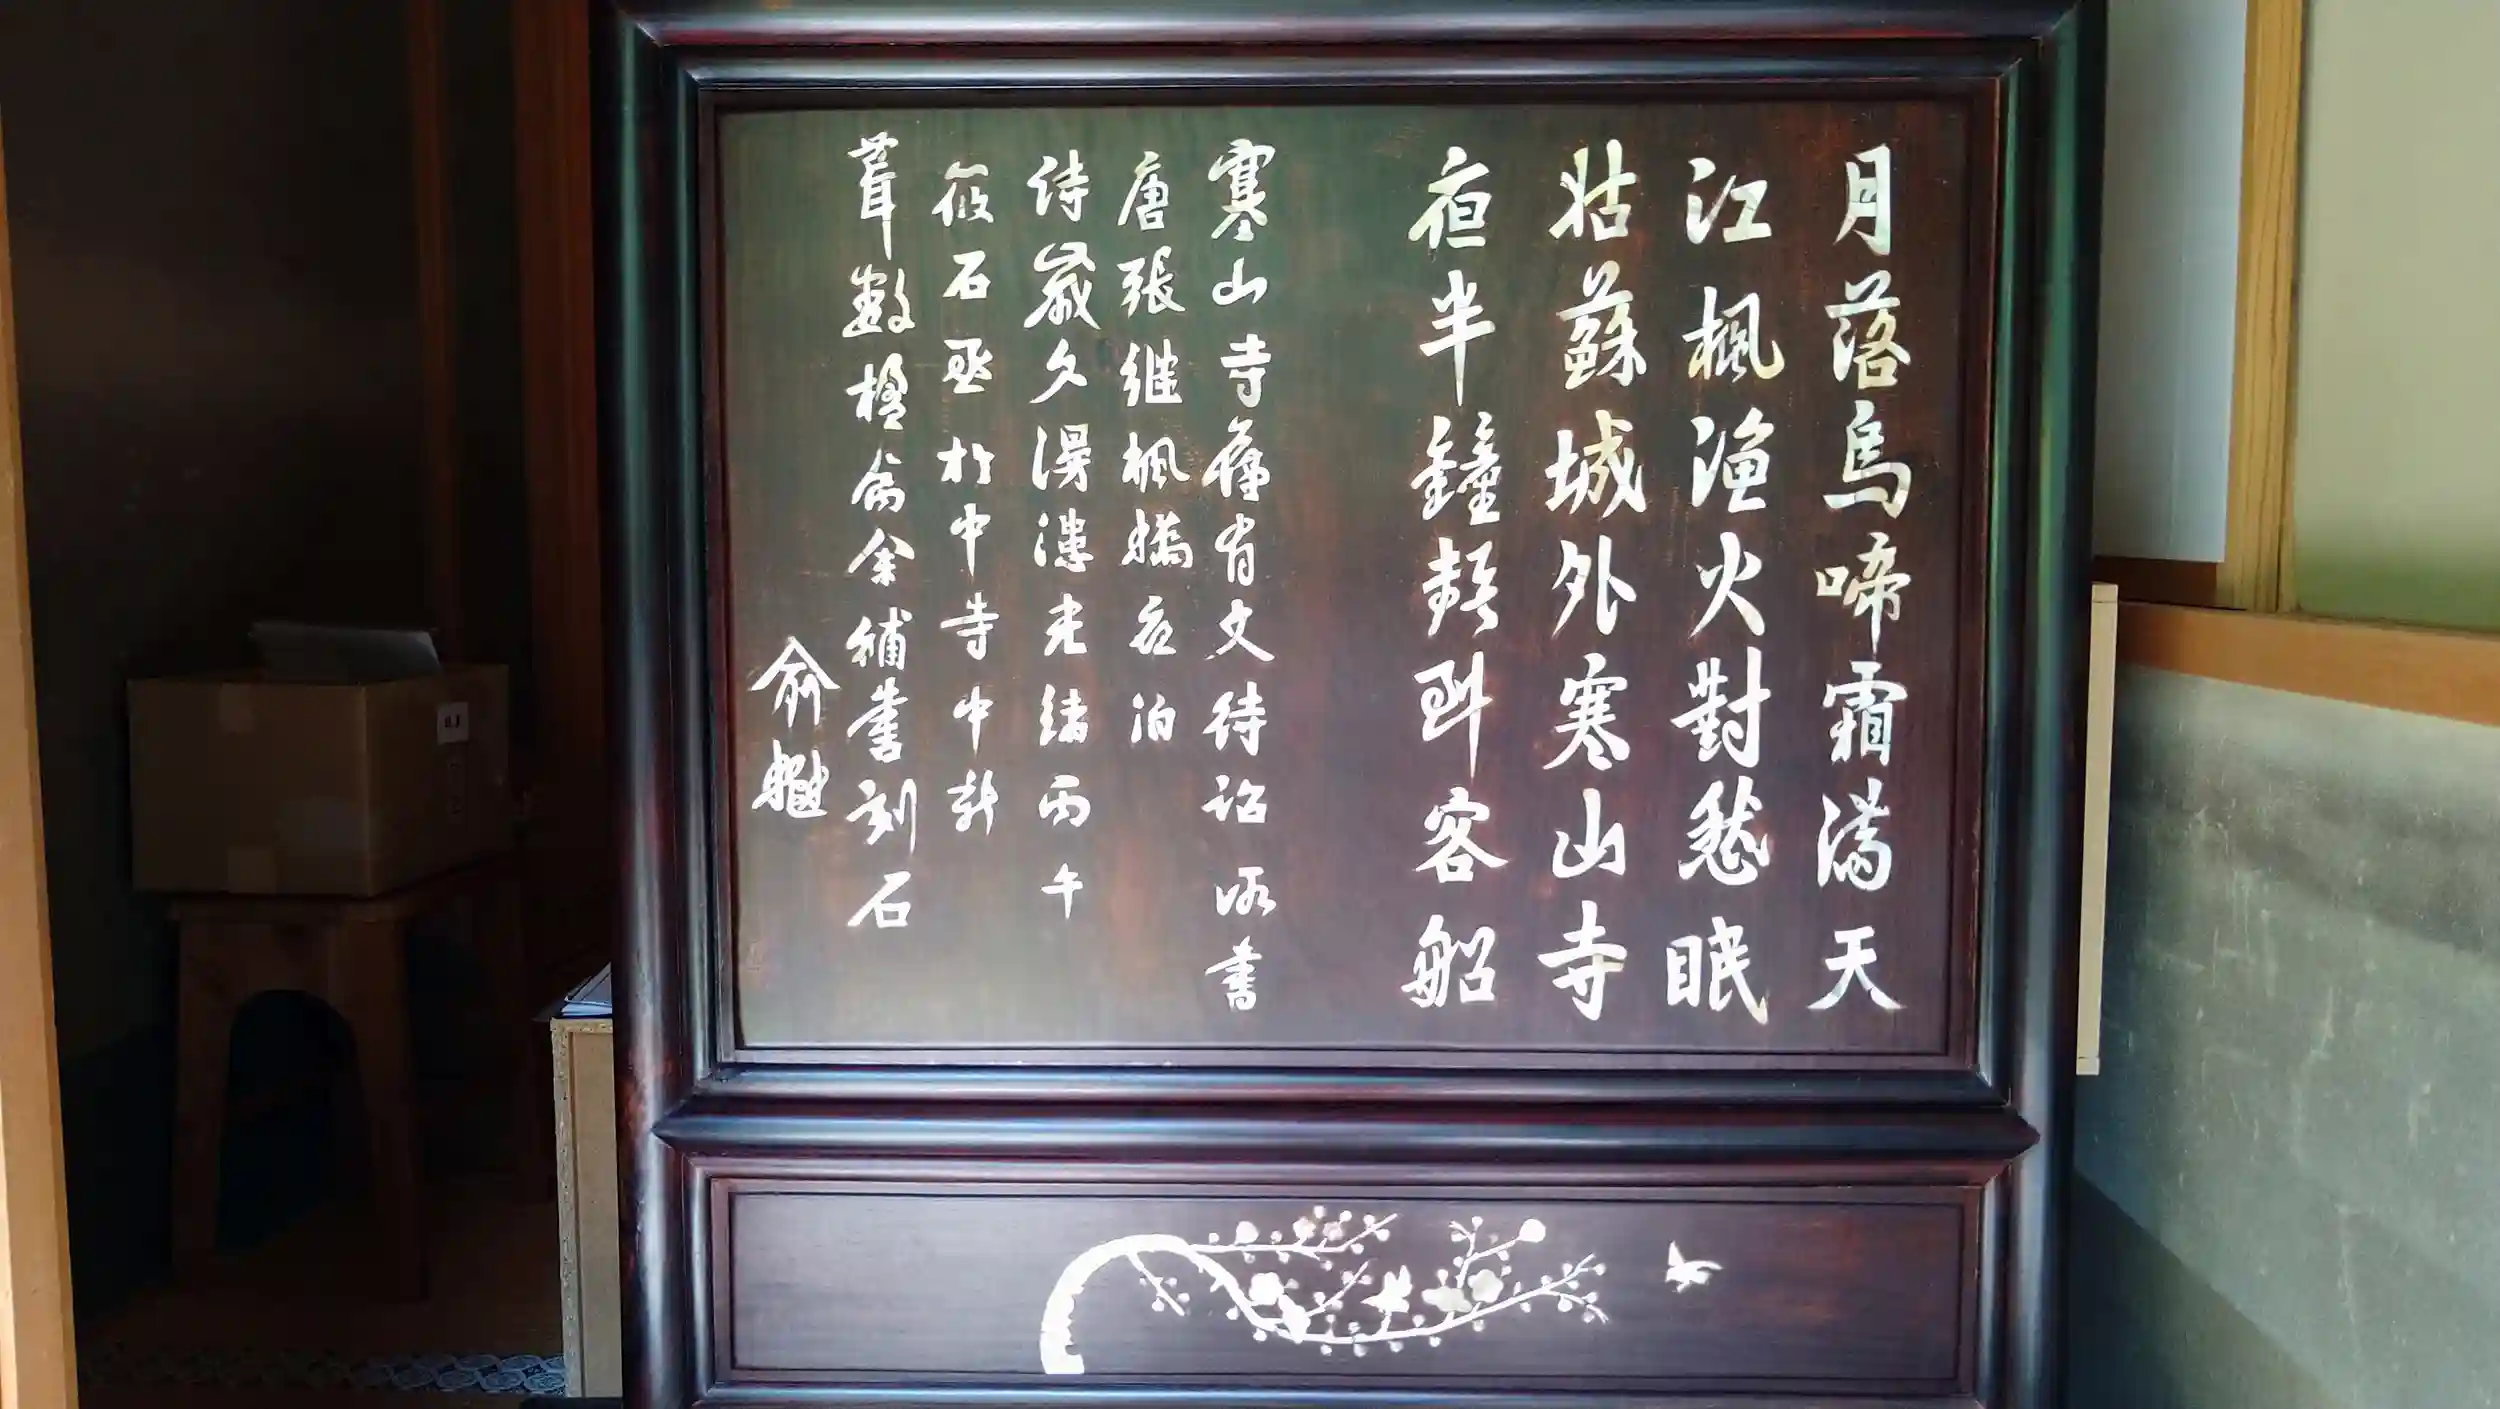 月落烏啼霜滿天
江楓漁火對愁眠
姑蘇城外寒山寺
夜半鐘聲到客船
寒山寺舊有文待詔所書
唐張继楓橋夜泊
詩歲久漫漶光緒丙午
筱石中丞於寺中新
葺數楹屬余補書刻石
俞樾